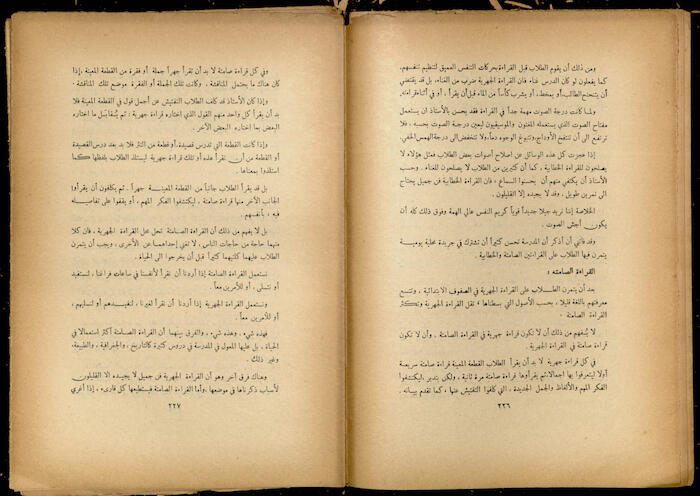 ومن ذلك أن يقوم الطلاب قبل القراءة بحركات التنفس العميق لتنظيم تنفسهم,
كما يفعلون لو كان الدرس غناء فان القراءة الجهرية ضرب من الغناء ، بل قد يقتضي
أن يتنحنح الطالب أو يمخط ، أو يشرب كأساً من الماء قبل أن يقرأ ، أو في أثناء قراءته.
ولما كانت درجة الصوت مهمة جداً في القراءة فقد يحسن بالأستاذ ان يستعمل
مفتاح الصوت الذي يستعمله المغنون والموسيقيون ليعين درجة الصوت بحسه ، فلا
ترتفع الى أن تنتفخ الأوداج، وتتبوغ الوجوه دماً، ولا تنخفض الى درجة الهمس الخفي.
إذا عجزت كل هذه الوسائل عن اصلاح أصوات بعض الطلاب فمثل هؤلاء لا
يصلحون للقراءة الخطابية ، كما أن كثيرين من الطلاب لا يصلحون للغناء . وحسب
الأستاذ أن يكتفي منهم أن يحسنوا السماع ؛ فان القراءة الخطابية فن جميل يحتاج
الى تمرين طويل ، وقد لا يجيده إلا القليلون .
الخلاصة إننا نريد جيلا جديداً قوياً كريم النفس عالي الهمة وفوق ذلك كله أن
يكون أجش الصوت .
وقد فاتني أن أذكر أن المدرسة تحسن كثيراً أن تشترك في جريدة محلية يومية
يتمرن فيها الطلاب على القراءتين الصامتة والخطابية .
القراءة الصامتة :
بعد أن يتمرن الطلاب على القراءة الجهرية في الصفوف الابتدائية ، وتتسع
معرفتهم باللغة قليلا ، بحسب الأصول التي بسطناها ؛ تقل القراءة الجهرية وتكثر
القراءة الصامتة .
لا يُفهم من ذلك أن لا تكون قراءة جهرية في القراءة الصامتة ، وأن لا تكون
قراءة صامتة في القراءة الجهرية
في كل قراءة جهرية لا بد أن يقرأ الطلاب القطعة المعينة قراءة صامتة سريعة
أولا ليتعرفوا بها اجمالا، ثم يقرأوها قراءة صامتة مرة ثانية ، ولكن بتدبر، ليكتشفوا
الفكر المهم والألفاظ والجمل الجديدة ، التي كلفوا التفتيش عنها ، كما تقدم بيانه .
٢٢٦
وفي كل قراءة صامتة لا بد أن يُقرأ جهراً جملة أو فقرة من القطعة المعينة ، إذا
كان هناك ما يحتمل المناقشة ، وكانت تلك الجملة أو الفقرة موضع تلك المناقشة .
وإذا كان الأستاذ قد كلف الطلاب التفتيش عن أجمل قول في القطعة المعينة فلا
بد أن يقرأ كل واحد منهم القول الذي اختاره قراءة جهرية ؛ ثم يُقابل ما اختاره
البعض بما اختاره البعض الآخر .
وإذا كانت القطعة التي تدرس قصيدة، أو قطعة من النثر فلا بد بعد درس القصيدة
أو القطعة من أن تقرأ هذه أو تلك قراءة جهرية ليستلذ الطلاب بلفظها كما
استلذوا بمعناها .
بل قد يقرأ الطلاب جانباً من القطعة المعينة جهراً ، ثم يكلفون أن يقرأوا
الجانب الآخر منها قراءة صامتة ، ليكتشفوا الفكر المهم ، أو يقفوا على تفاصيله
فيه ، بأنفسهم .
بل لا يفهم من ذلك أن القراءة الصامتة تحل محل القراءة الجهرية ، فان كلا
منهما حاجة من حاجات الناس ، لا تغني إحداهما عن الأخرى ، ويجب أن يتمرن
الطلاب عليهما كلتيهما كثيراً قبل أن يخرجوا الى الحياة .
نستعمل القراءة الصامتة إذا أردنا أن نقرأ لأنفسنا في ساعات فراغنا ، لنستفيد
أو نتسلى ، أو للأمرين معاً .
ونستعمل القراءة الجهرية إذا أردنا أن نقرأ لغيرنا ، لنفيدهم أو لنسليهم ،
أو للأمرين معاً .
فهذه شيء ، وهذه شيء ، والفرق بينهما أن القراءة الصامتة أكثر استعمالا في
الحياة ، بل عليها المعول في المدرسة في دروس كثيرة كالتاريخ ، والجغرافية ، والطبيعة،
وغير ذلك .
وهناك فرق آخر وهو أن القراءة الجهرية فن جميل لا يجيده الا القليلون
لأسباب ذكرناها في موضعها، وأما القراءة الصامتة فيستطيعها كل قارىء ، إذا أغري
٢٢٧